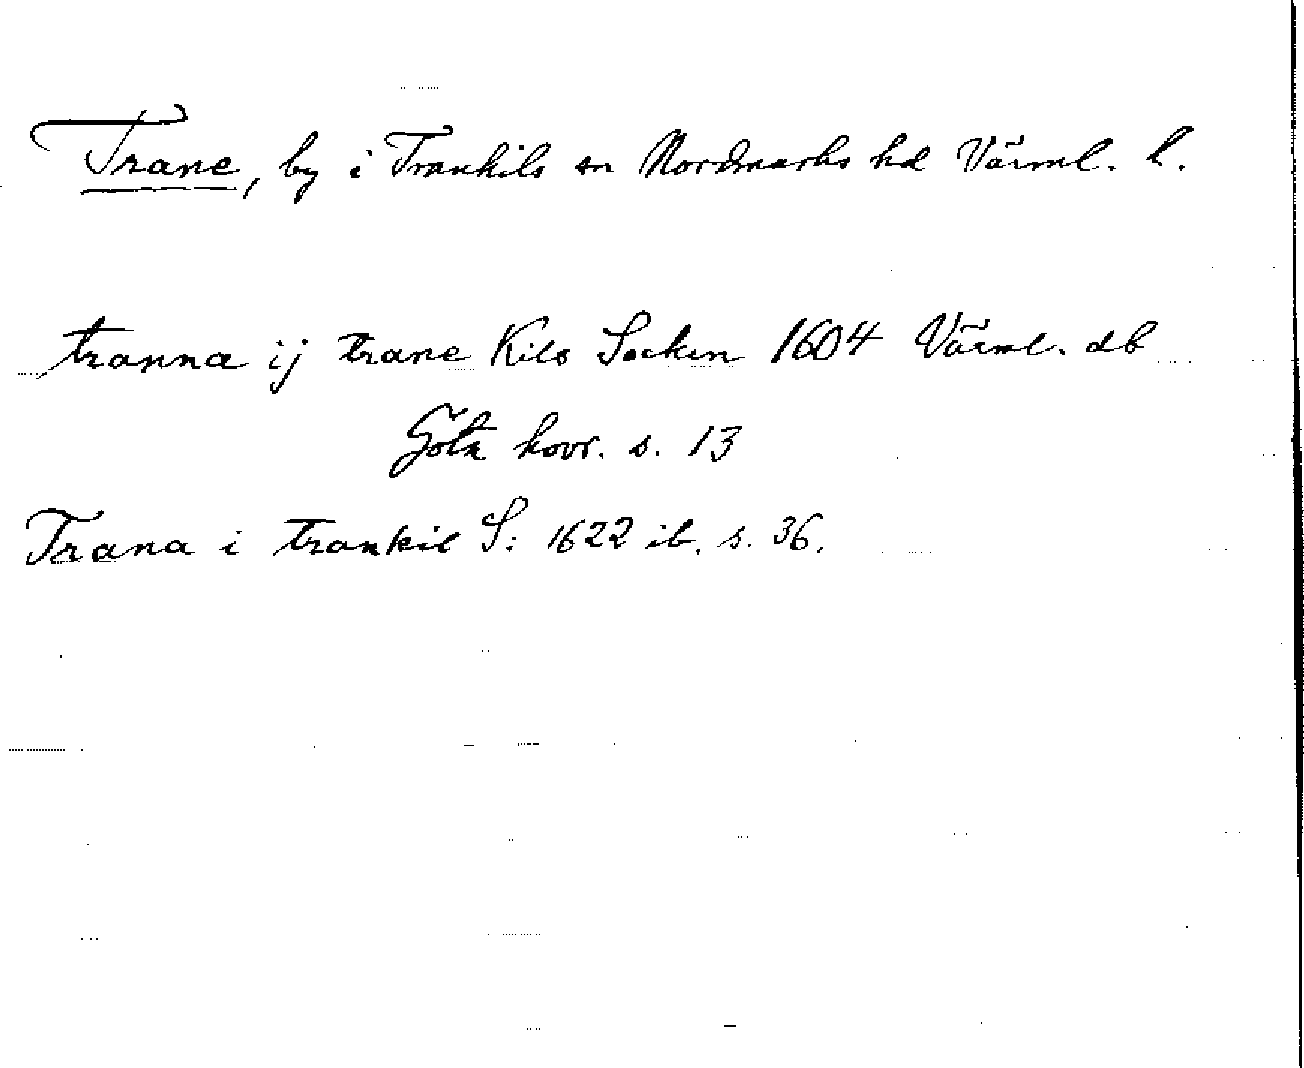 Trane, by i Trankils sn Nordmarks hd Värml. l.
tranna ij trane Kils Socken 1604 Värml. db
Göta hovr. s. 13
Trana i trankil S: 1622 ib. s. 36.